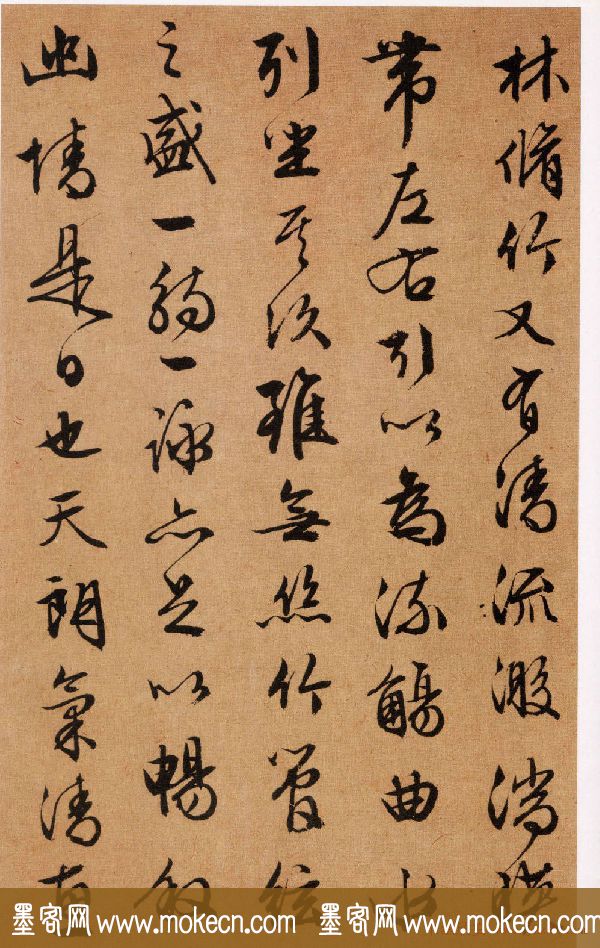 林脩竹又有清流激湍暎
帶左右引以為流觴曲水
列坐其次雖無絲竹管
之盛一觴一詠亦足以暢敘
幽情是日也天朗氣清
墨客网 www.mokecn.com 墨客网 www.mokecn.com